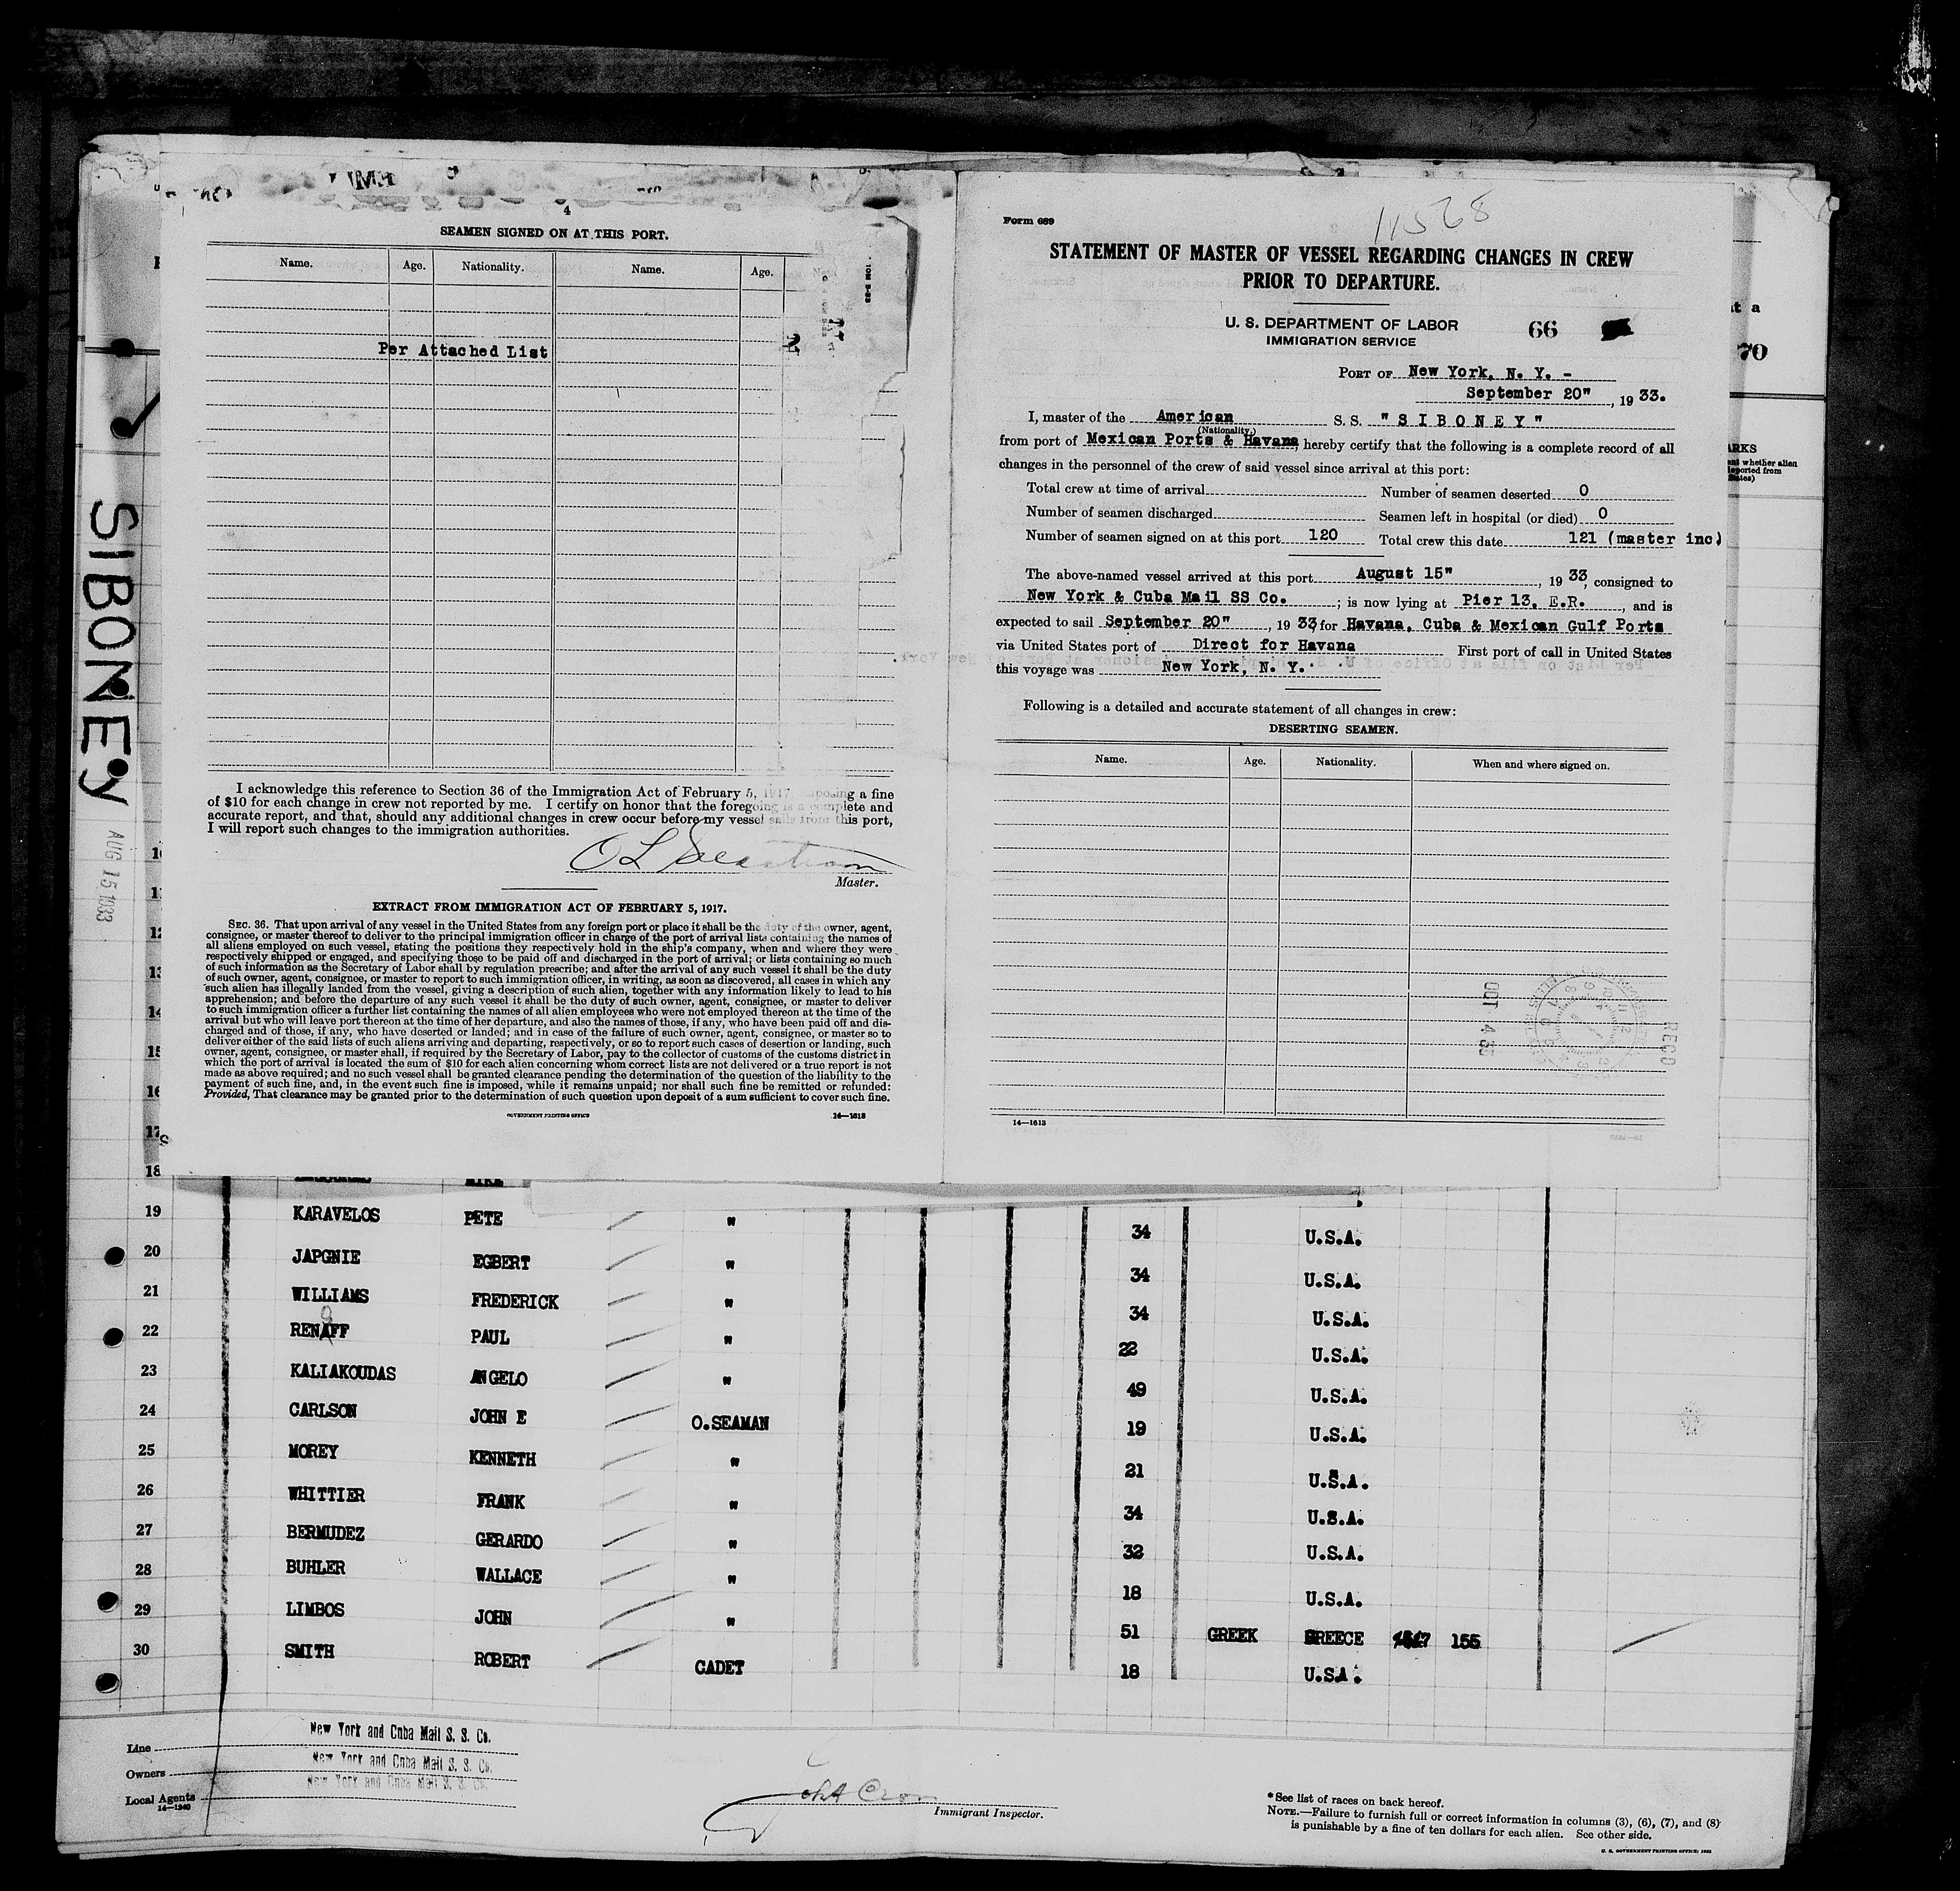 4
SEAMEN SIGNED ON AT THIS PORT.
Name. Age. Nationality. Name. Age.
Per Attached List
I acknowledge this reference to Section 36 of the Immigration Act of February 5, 1917, imposing a fine
of $10 for each change in crew not reported by me. I certify on honor that the foregoing is a complete and
accurate report, and that, should any additional changes in crew occur before my vessel sails from this port,
I will report such changes to the immigration authorities.
O L
Master.
EXTRACT FROM IMMIGRATION ACT OF FEBRUARY 5, 1917.
SEC. 36. That upon arrival of any vessel in the United States from any foreign port or place it shall be the duty of the owner, agent,
consignee, or master thereof to deliver to the principal immigration officer in charge of the port of arrival lists containing the names of
all aliens employed on such vessel, stating the positions they respectively hold in the ship's company, when and where they were
respectively shipped or engaged, and specifying those to be paid off and discharged in the port of arrival; or lists containing so much
of such information as the Secretary of Labor shall by regulation prescribe; and after the arrival of any such vessel it shall be the duty
of such owner, agent, consignee, or master to report to such immigration officer, in writing, as soon as discovered, all cases in which any
such alien has illegally landed from the vessel, giving a description of such alien, together with any information likely to lead to his
apprehension; and before the departure of any such vessel it shall be the duty of such owner, agent, consignee, or master to deliver
to such immigration officer a further list containing the names of all alien employees who were not employed thereon at the time of the
arrival but who will leave port thereon at the time of her departure, and also the names of those, if any, who have been paid off and dis-
charged and of those, if any, who have deserted or landed; and in case of the failure of such owner, agent, consignee, or master so to
deliver either of the said lists of such aliens arriving and departing, respectively, or so to report such cases of desertion or landing, such
owner, agent, consignee, or master shall, if required by the Secretary of Labor, pay to the collector of customs of the customs district in
which the port of arrival is located the sum of $10 for each alien concerning whom correct lists are not delivered or a true report is not
made as above required; and no such vessel shall be granted clearance pending the determination of the question of the liability to the
payment of such fine, and, in the event such fine is imposed, while it remains unpaid; nor shall such fine be remitted or refunded:
Provided, That clearance may be granted prior to the determination of such question upon deposit of a sum sufficient to cover such fine.
GOVERNMENT PRINTING OFFICE 14—1613
Form 689
11568
STATEMENT OF MASTER OF VESSEL REGARDING CHANGES IN CREW
PRIOR TO DEPARTURE.
U. S. DEPARTMENT OF LABOR
IMMIGRATION SERVICE
66
PORT OF New York, N. Y. -
September 20", 1933.
I, master of the American S. S. "S I B O N E Y"
(Nationality.)
from port of Mexican Ports & Havana, hereby certify that the following is a complete record of all
changes in the personnel of the crew of said vessel since arrival at this port:
Total crew at time of arrival Number of seamen deserted 0
Number of seamen discharged Seamen left in hospital (or died) 0
Number of seamen signed on at this port 120 Total crew this date 121 (master inc)
The above-named vessel arrived at this port August 15", 1933, consigned to
New York & Cuba Mail SS Co. ; is now lying at Pier 13, E.R. , and is
expected to sail September 20", 1933 for Havana, Cuba & Mexican Gulf Ports
via United States port of Direct for Havana First port of call in United States
this voyage was New York, N. Y.
Following is a detailed and accurate statement of all changes in crew:
DESERTING SEAMEN.
Name. Age. Nationality. When and where signed on.
OCT 4 33
RECD
14—1613
SIBONEY
AUG 15 1933
70
10
11
12
13
14
15
16
17
18 MIKE
19 KARAVELOS PETE " 34 U.S.A.
20 JAPGNIE EGBERT " 34 U.S.A.
21 WILLIAMS FREDERICK " 34 U.S.A.
22 RENAFF PAUL " 22 U.S.A.
23 KALIAKOUDAS ANGELO " 49 U.S.A.
24 CARLSON JOHN E O.SEAMAN 19 U.S.A.
25 MOREY KENNETH " 21 U.S.A.
26 WHITTIER FRANK " 34 U.S.A.
27 BERMUDEZ GERARDO " 32 U.S.A.
28 BUHLER WALLACE " 18 U.S.A.
29 LIMBOS JOHN " 51 GREEK GREECE 155
30 SMITH ROBERT CADET 18 U.S.A.
Line New York and Cuba Mail S. S. Co.
Owners New York and Cuba Mail S. S. Co.
Local Agents New York and Cuba Mail S. S. Co.
14—1240
Immigrant Inspector.
*See list of races on back hereof.
NOTE.—Failure to furnish full or correct information in columns (3), (6), (7), and (8)
is punishable by a fine of ten dollars for each alien. See other side.
U. S. GOVERNMENT PRINTING OFFICE: 1932